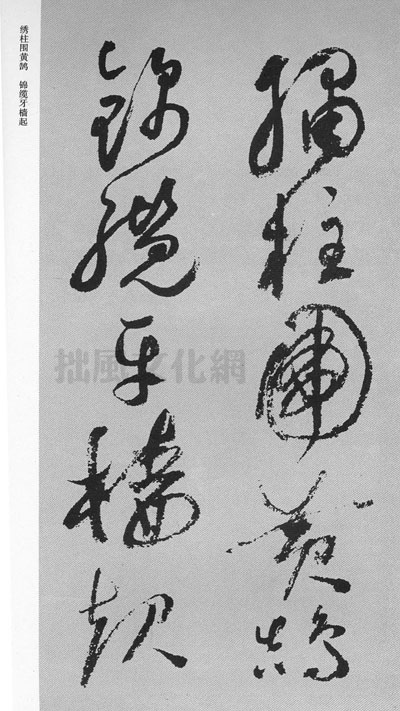 繡柱圍黃鵠
錦纜牙檣起
绣柱围黄鹄 锦缆牙樯起
拙風文化網